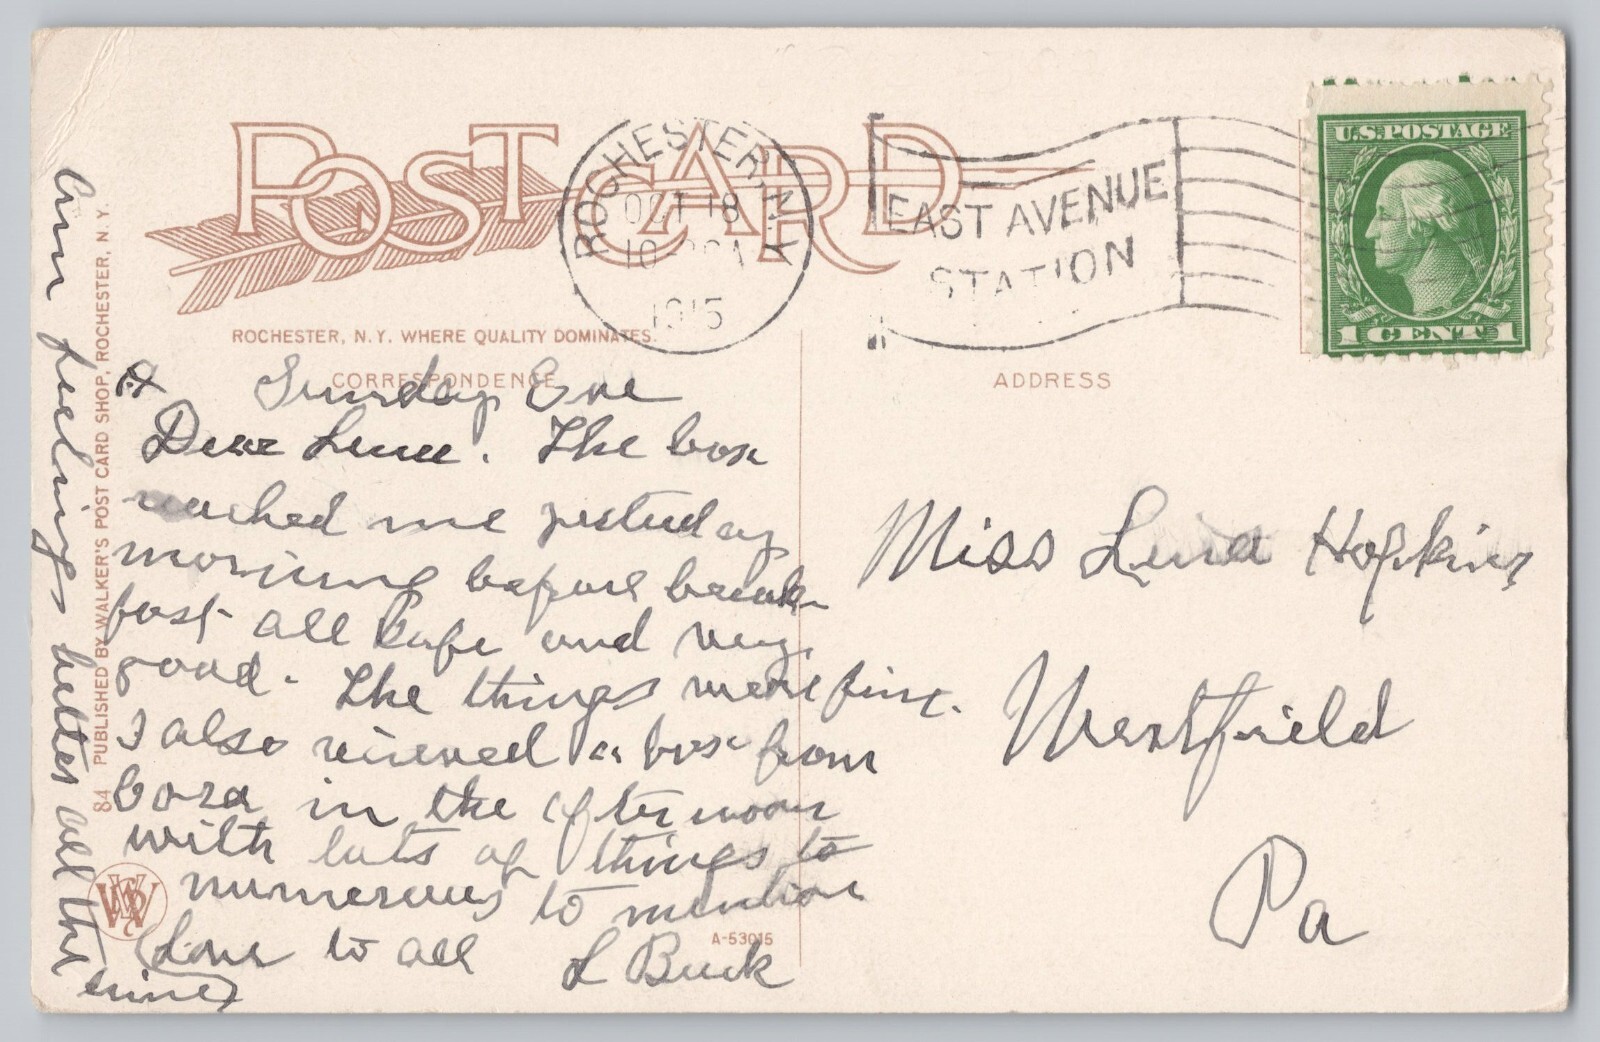 POST CARD
ROCHESTER, N.Y.
OCT 18
1915
EAST AVENUE
STATION
U.S. POSTAGE
1 CENT 1
ROCHESTER, N.Y. WHERE QUALITY DOMINATES.
CORRESPONDENCE
ADDRESS
Sunday Eve
Dear Lena. The box
reached me yesterday
morning before break-
fast all safe and very
good. The things were fine.
I also recieved a box from
Cora in the afternoon
with lots of things to
numerous to mention
Love to all L Buck
Am feeling better all the
time
Miss Lena Hopkins
Westfield
Pa
84 PUBLISHED BY WALKER'S POST CARD SHOP, ROCHESTER, N.Y.
A-53015